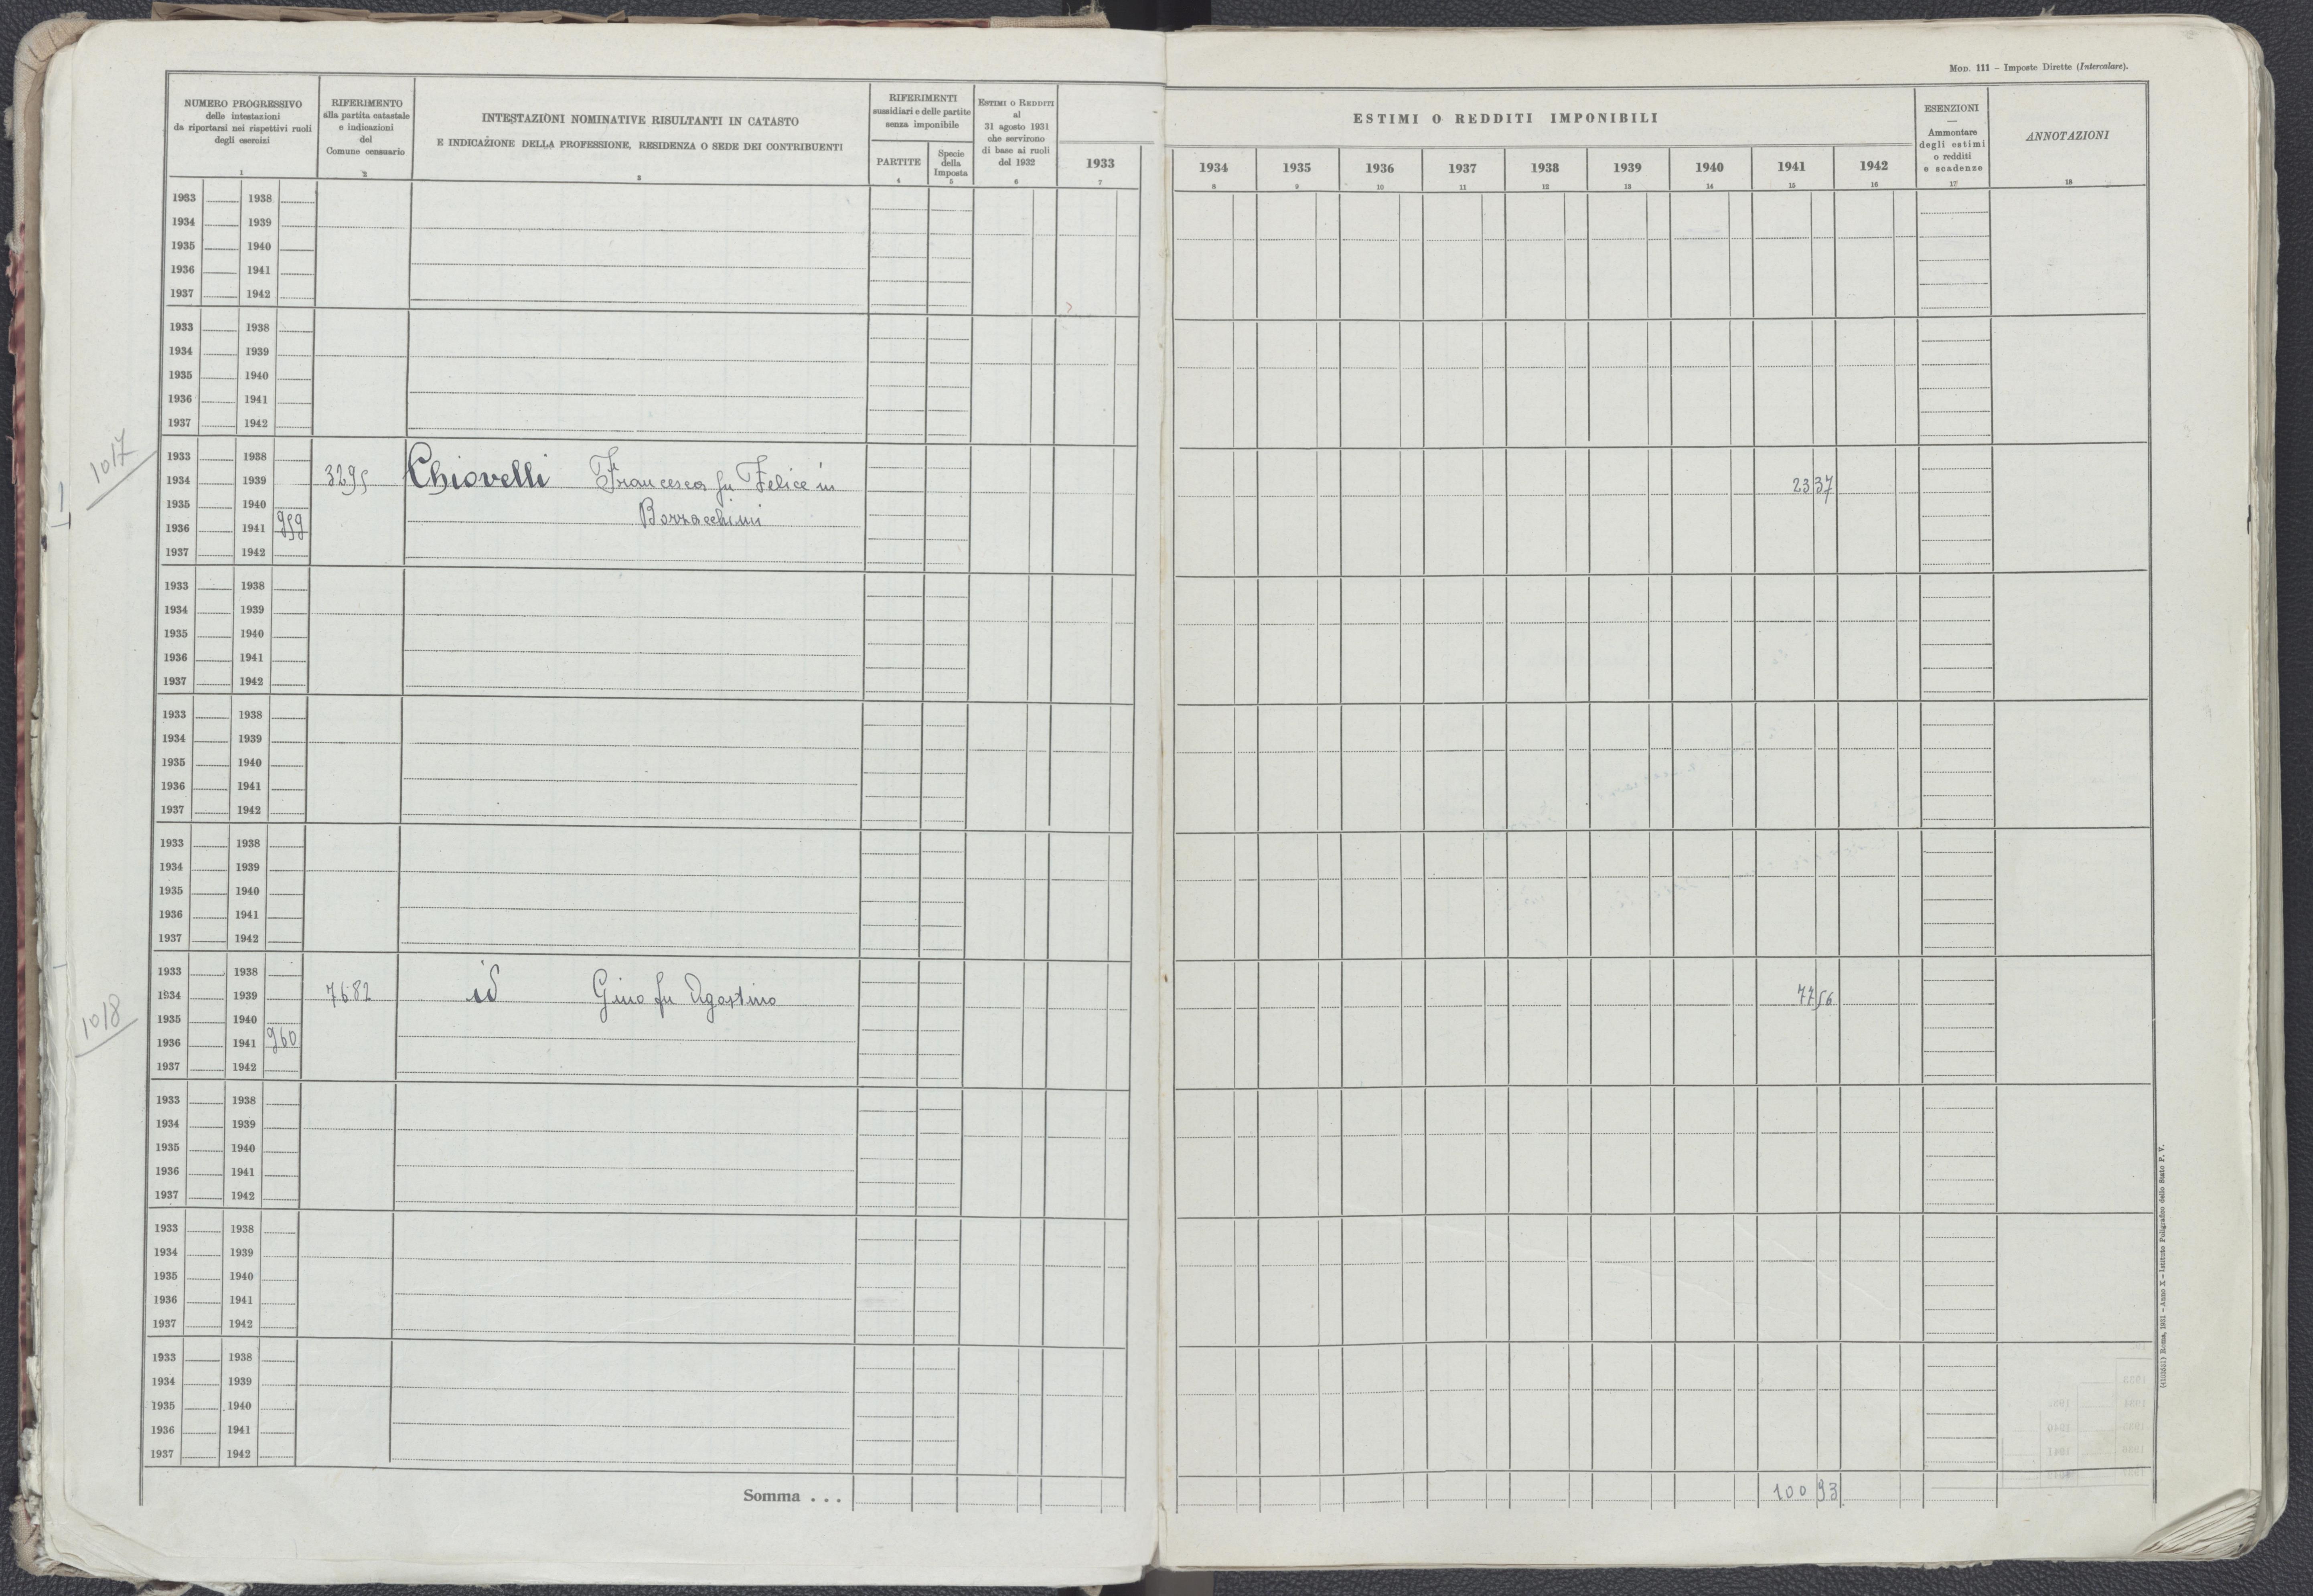 MOD. 111 – Imposte Dirette (Intercalare).
NUMERO PROGRESSIVO
delle intestazioni
da riportarsi nei rispettivi ruoli
degli esercizi
1
RIFERIMENTO
alla partita catastale
e indicazioni
del
Comune censuario
2
INTESTAZIONI NOMINATIVE RISULTANTI IN CATASTO
E INDICAZIONE DELLA PROFESSIONE, RESIDENZA O SEDE DEI CONTRIBUENTI
3
RIFERIMENTI
sussidiari e delle partite
senza imponibile
PARTITE
4
Specie
della
Imposta
5
ESTIMI O REDDITI
al
31 agosto 1931
che servirono
di base ai ruoli
del 1932
6
ESTIMI O REDDITI IMPONIBILI
1933 1934 1935 1936 1937 1938 1939 1940 1941 1942
7 8 9 10 11 12 13 14 15 16
ESENZIONI
—
Ammontare
degli estimi
o redditi
e scadenze
17
ANNOTAZIONI
18
1933 1938
1934 1939
1935 1940
1936 1941
1937 1942
1933 1938
1934 1939
1935 1940
1936 1941
1937 1942
1017
1933 1938
1934 1939 3295 Chiovelli Francesca fu Felice in 23 37
1935 1940
1936 1941 959 Borzacchini
1937 1942
1933 1938
1934 1939
1935 1940
1936 1941
1937 1942
1933 1938
1934 1939
1935 1940
1936 1941
1937 1942
1933 1938
1934 1939
1935 1940
1936 1941
1937 1942
1018
1933 1938
1934 1939 7682 id Gino fu Agostino 77 56
1935 1940
1936 1941 960
1937 1942
1933 1938
1934 1939
1935 1940
1936 1941
1937 1942
1933 1938
1934 1939
1935 1940
1936 1941
1937 1942
1933 1938
1934 1939
1935 1940
1936 1941
1937 1942
Somma . . . 100 93
Roma, 1931 – Anno X – Istituto Poligrafico dello Stato P. V.